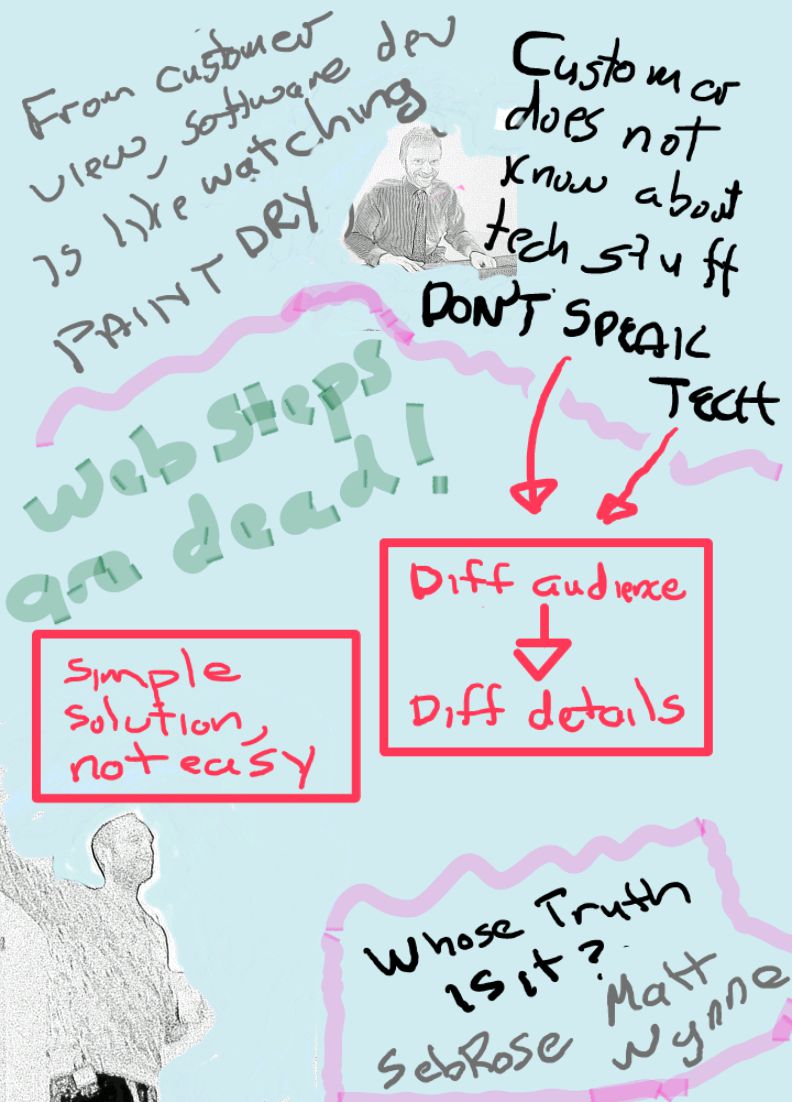 From customer
view, software dev
is like watching
PAINT DRY
Customer
does not
know about
tech stuff
DON'T SPEAK
TECH
Web Steps
are dead!
Diff audience
Diff details
simple
solution,
not easy
Whose Truth
is it?
Seb Rose
Matt
Wynne